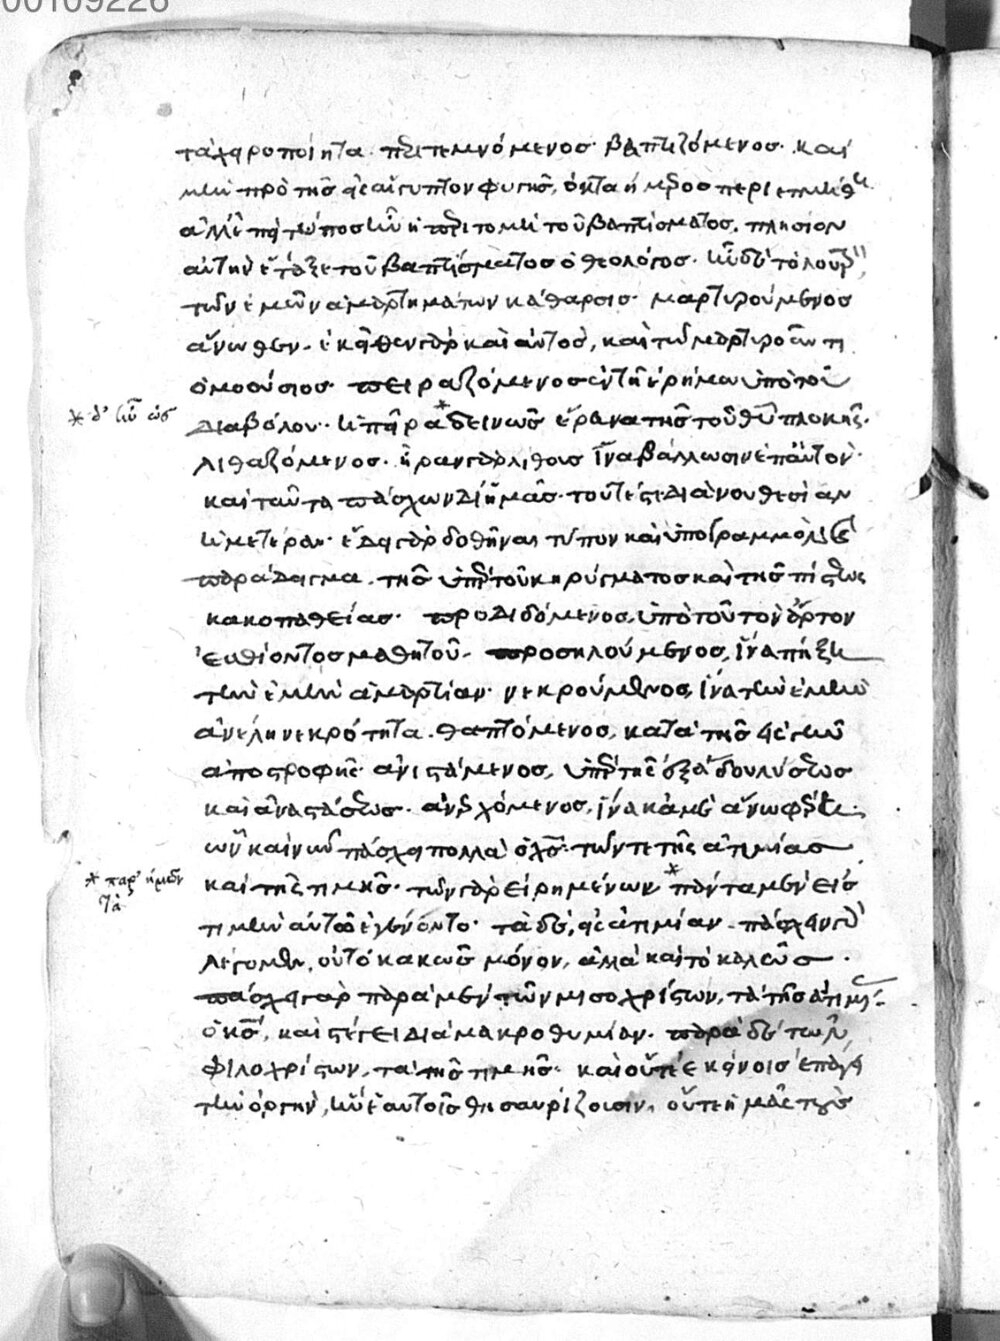 00109226
τὰ χειροποίητα. περιτεμνόμενος. βαπτιζόμενος. καὶ
μὴν πρὸ τῆς εἰς αἴγυπτον φυγῆς, ὀκταήμερος περιετμήθη.
ἀλλ' ἐπεὶ τύπος ἦν ἡ περιτομὴ τοῦ βαπτίσματος. πλησίον
αὐτὴν ἔταξε τοῦ βαπτίσματος ὁ θεολόγος. ἦν δὲ τὸ λουτρὸν
τῶν ἐμῶν ἁμαρτημάτων κάθαρσις. μαρτυρούμενος
ἄνωθεν. ἐκεῖθεν γὰρ καὶ αὐτὸς, καὶ τῶ μαρτυροῦντι
ὁμοούσιος. πειραζόμενος ἐν τῆ ἐρήμω ὑπὸ τοῦ
Διαβόλου. ἡ πεῖρα * δεινῶς ἔρευνα τῆς τοῦ θεοῦ πλοκῆς.
* δ' ἦν ὡς
λιθαζόμενος. ἦραν γὰρ λίθους ἵνα βάλλωσιν ἐπ' αὐτὸν.
καὶ ταῦτα πάσχων δι' ἡμᾶς. τουτέστι διὰ νουθεσίαν
ἡμετέραν. ἔδει γὰρ δοθῆναι τύπον καὶ ὑπογραμμὸν
παράδειγμα. τῆς ὑπὲρ τοῦ κηρύγματος καὶ τῆς πίστεως
κακοπαθείας. προδιδόμενος, ὑπὸ τοῦ τὸν ἄρτον
ἐσθίοντος μαθητοῦ. προσηλούμενος, ἵνα πήξη
τὴν ἐμὴν ἁμαρτίαν. νεκρούμενος, ἵνα τὴν ἐμὴν
ἀνέλη νεκρότητα. θαπτόμενος, κατὰ τῆς εἰς γῆν
ἀποστροφῆς. ἀνιστάμενος, ὑπὲρ τῆς ἐξαναδουλύσεως
καὶ ἀναστάσεως. ἀνερχόμενος, ἵνα κἀμὲ ἄνω φέρη.
ὧν καὶ νῦν πάσχει πολλὰ ὁ χριστὸς. τῶν τε τῆς ἀτιμίας
καὶ τῆς τιμῆς. τῶν γὰρ εἰρημένων * πάντα μὲν εἰς
* παρ' ἡμῶν
τὰ
τιμὴν αὐτοῦ ἐγένοντο. τὰ δὲ, εἰς ἀτιμίαν. πάσχειν δὲ
λέγομεν, οὐ τὸ κακῶς μόνον, ἀλλὰ καὶ τὸ καλῶς.
πάσχει γὰρ παρὰ μὲν τῶν μισοχρίστων, τὰ τῆς ἀτιμίας.
ὁ χριστὸς, καὶ στέγει διὰ μακροθυμίαν. παρὰ δὲ τῶν
φιλοχρίστων, τὰ τῆς τιμῆς. καὶ οὔτε ἐκείνοις ἐπάγει
τὴν ὀργὴν, ἣν ἑαυτοῖς θησαυρίζουσιν, οὔτε ἡμᾶς